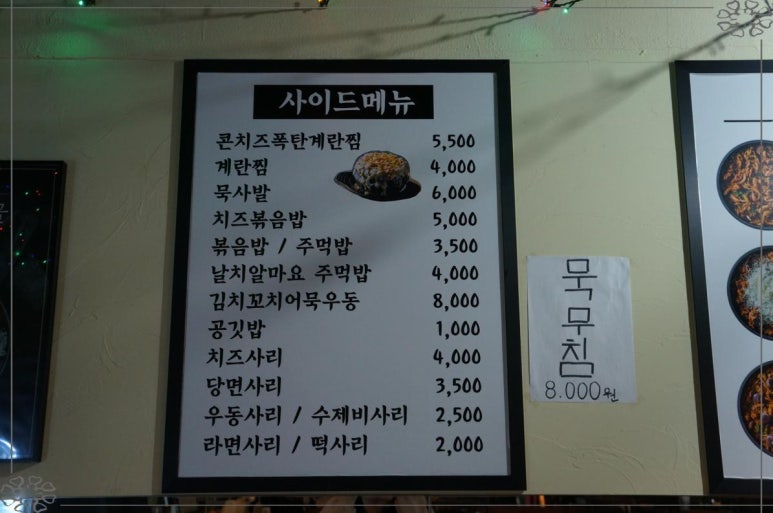 사이드메뉴
콘치즈폭탄계란찜 5,500
계란찜 4,000
묵사발 6,000
치즈볶음밥 5,000
볶음밥 / 주먹밥 3,500
날치알마요 주먹밥 4,000
김치꼬치어묵우동 8,000
공깃밥 1,000
치즈사리 4,000
당면사리 3,500
우동사리 / 수제비사리 2,500
라면사리 / 떡사리 2,000
묵
무
침
8.000원